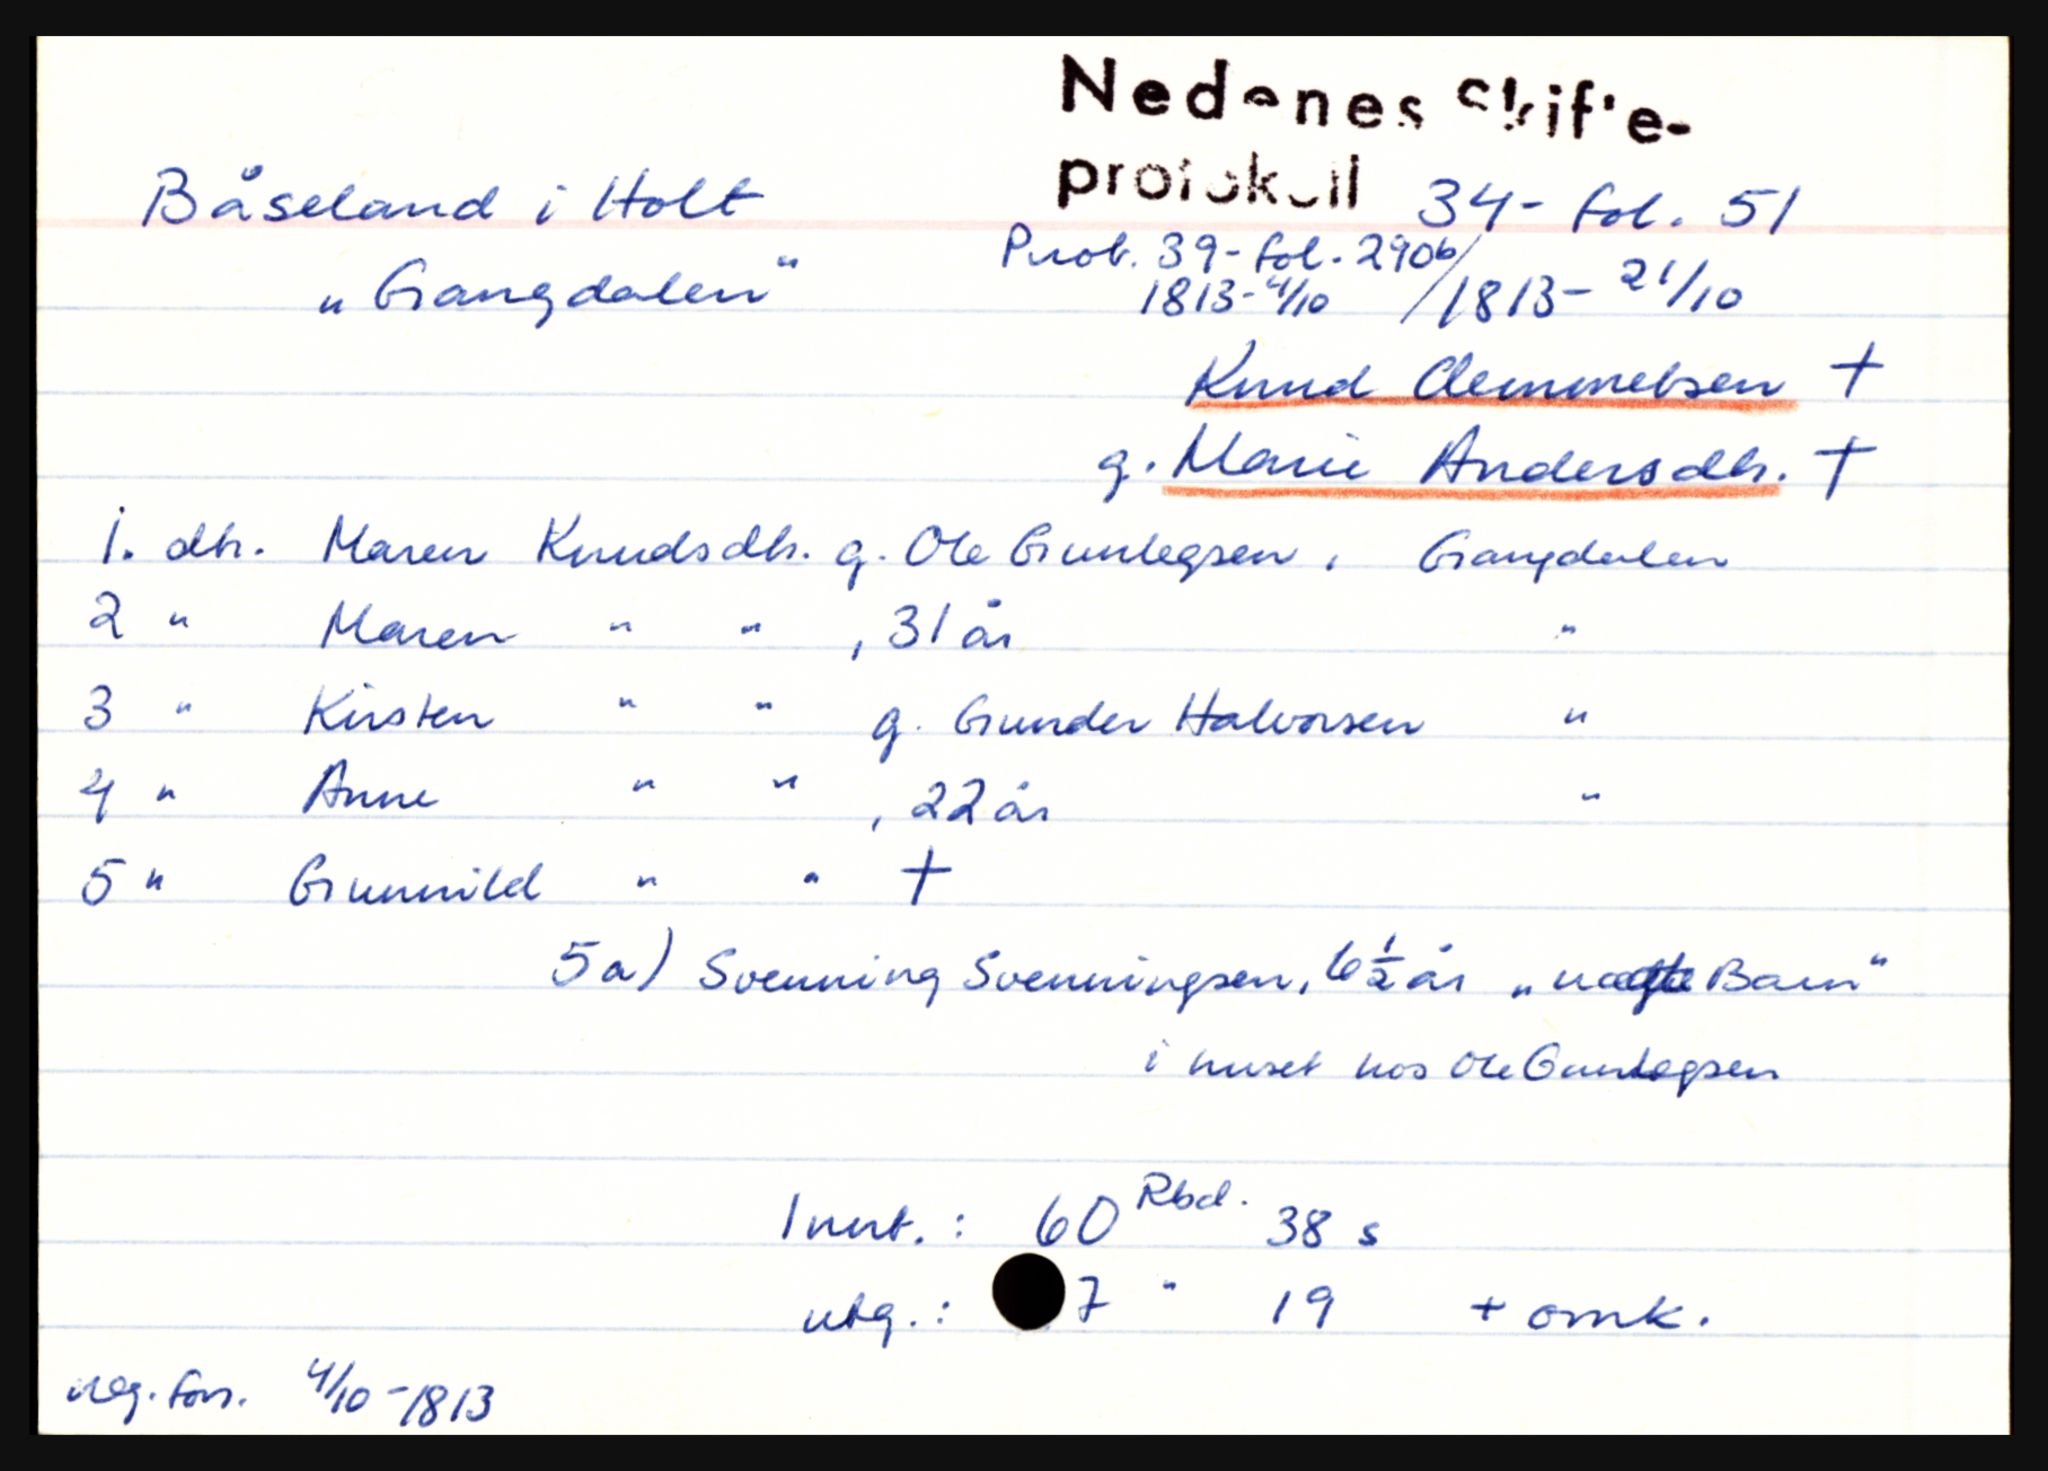 Nedenes Skifte-
protokoll 34- fol. 51
Båseland i Holt
Prot. 39- fol. 290b/
„Gangdalen"
1813-4/10 /1813- 21/10
Knud Clemmetsen †
g. Marie Andersdtr. †
1. dtr. Maren Knudsdtr. g. Ole Gunlegsen, Gangdalen
2 " Maren " " , 31 år "
3 " Kirsten " " g. Gunder Halvorsen "
4 " Anne " " , 22 år "
5 " Gunnild " " †
5a) Svenning Svenningsen, 6 1/2 år „uægte Barn"
i huset hos Ole Gunlegsen
Innt.: 60 Rbd. 38 s
utg.: 7 " 19 + omk.
reg. forr. 4/10-1813